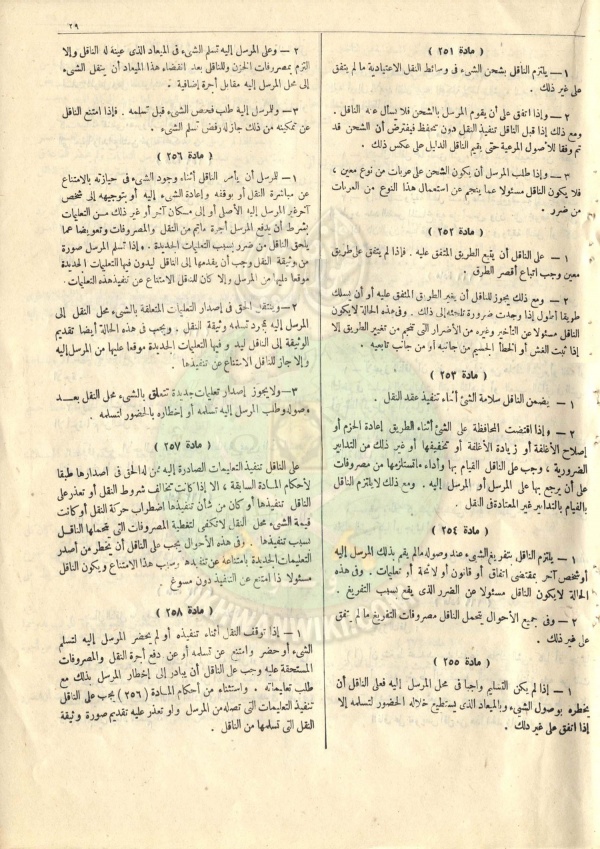 ٢٩
( مادة ٢٥١ )
١ — يلتزم الناقل بشحن الشىء فى وسائط النقل الاعتيادية ما لم يتفق
على غير ذلك .
٢ — وإذا اتفق على أن يقوم المرسل بالشحن فلا يسأل عنه الناقل .
ومع ذلك إذا قبل الناقل تنفيذ النقل دون تحفظ فيفترض أن الشحن قد
تم وفقا للأصول المرعية حتى يقيم الناقل الدليل على عكس ذلك .
٣ — وإذا طلب المرسل أن يكون الشحن على عربات من نوع معين ،
فلا يكون الناقل مسئولا عما ينجم عن استعمال هذا النوع من العربات
من ضرر .
( مادة ٢٥٢ )
١ — على الناقل أن يتبع الطريق المتفق عليه . فإذا لم يتفق على طريق
معين وجب اتباع أقصر الطرق .
٢ — ومع ذلك يجوز للناقل أن يغير الطريق المتفق عليه أو أن يسلك
طريقا أطول إذا وجدت ضرورة تلجئه إلى ذلك . وفى هذه الحالة لا يكون
الناقل مسئولا عن التأخير وغيره من الأضرار التى تنجم من تغيير الطريق إلا
إذا ثبت الغش أو الخطأ الجسيم من جانبه أو من جانب تابعيه .
( مادة ٢٥٣ )
١ — يضمن الناقل سلامة الشئ أثناء تنفيذ عقد النقل .
٢ — وإذا اقتضت المحافظة على الشئ أثناء الطريق إعادة الحزم أو
إصلاح الأغلفة أو زيادة الأغلفة أو تخفيفها أو غير ذلك من التدابير
الضرورية ، وجب على الناقل القيام بها وأداء ما تستلزمها من مصروفات
على أن يرجع بها على المرسل أو المرسل إليه . ومع ذلك لا يلتزم الناقل
بالقيام بالتدابير غير المعتادة فى النقل .
( مادة ٢٥٤ )
١ — يلتزم الناقل بتفريغ الشىء عند وصوله ما لم يقم بذلك المرسل إليه
أو شخص آخر بمقتضى اتفاق أو قانون أو لائحة أو تعليمات . وفى هذه
الحالة لا يكون الناقل مسئولا عن الضرر الذى يقع بسبب التفريغ .
٢ — وفى جميع الأحوال يتحمل الناقل مصروفات التفريغ ما لم يتفق
على غير ذلك .
( مادة ٢٥٥ )
١ — إذا لم يكن التسليم واجبا فى محل المرسل إليه فعلى الناقل أن
يخطره بوصول الشىء وبالميعاد الذى يستطيع خلاله الحضور لتسلمه إلا
إذا اتفق على غير ذلك .
٢ — وعلى المرسل إليه تسلم الشىء فى الميعاد الذى عينه له الناقل وإلا
التزم بمصروفات الخزن وللناقل بعد انقضاء هذا الميعاد أن ينقل الشىء
إلى محل المرسل إليه مقابل أجرة إضافية .
٣ — وللمرسل إليه طلب فحص الشىء قبل تسلمه . فإذا امتنع الناقل
عن تمكينه من ذلك جاز له رفض تسلم الشىء .
( مادة ٢٥٦ )
١ — للمرسل أن يأمر الناقل أثناء وجود الشىء فى حيازته بالامتناع
عن مباشرة النقل أو بوقفه وإعادة الشىء إليه أو بتوجيهه إلى شخص
آخر غير المرسل إليه الأصلى أو إلى مكان آخر أو غير ذلك من التعليمات
بشرط أن يدفع المرسل أجرة ما تم من النقل والمصروفات وتعويضا عما
يلحق الناقل من ضرر بسبب التعليمات الجديدة . وإذا تسلم المرسل صورة
من وثيقة النقل وجب أن يقدمها إلى الناقل ليدون فيها التعليمات الجديدة
موقعا عليها من المرسل وإلا كان للناقل الامتناع عن تنفيذ هذه التعليمات
٢ — وينتقل الحق فى إصدار التعليمات المتعلقة بالشىء محل النقل إلى
المرسل إليه بمجرد تسلمه وثيقة النقل . ويجب فى هذه الحالة أيضا تقديم
الوثيقة إلى الناقل ليدون فيها التعليمات الجديدة موقعا عليها من المرسل إليه
وإلا جاز للناقل الامتناع عن تنفيذها .
٣ — ولا يجوز إصدار تعليمات جديدة تتعلق بالشىء محل النقل بعد
وصوله وطلب المرسل إليه تسلمه أو إخطاره بالحضور لتسلمه .
( مادة ٢٥٧ )
على الناقل تنفيذ التعليمات الصادرة إليه ممن له الحق فى اصدارها طبقا
لأحكام المادة السابقة ، الا إذا كانت تخالف شروط النقل أو تعذر على
الناقل تنفيذها أو كان من شأن تنفيذها اضطراب حركة النقل أو كانت
قيمة الشىء محل النقل لا تكفى لتغطية المصروفات التى يتحملها الناقل
بسبب تنفيذها . وفى هذه الأحوال يجب على الناقل أن يخطر من أصدر
التعليمات الجديدة بامتناعه عن تنفيذها وسبب هذا الامتناع ويكون الناقل
مسئولا إذا امتنع عن التنفيذ دون مسوغ .
( مادة ٢٥٨ )
١ — إذا توقف النقل أثناء تنفيذه أو لم يحضر المرسل إليه لتسلم
الشىء أو حضر وامتنع عن تسلمه أو عن دفع أجرة النقل والمصروفات
المستحقة عليه وجب على الناقل أن يبادر إلى إخطار المرسل بذلك مع
طلب تعليماته . واستثناء من أحكام المادة (٢٥٦) يجب على الناقل
تنفيذ التعليمات التى تصله من المرسل ولو تعذر عليه تقديم صورة وثيقة
النقل التى تسلمها من الناقل .